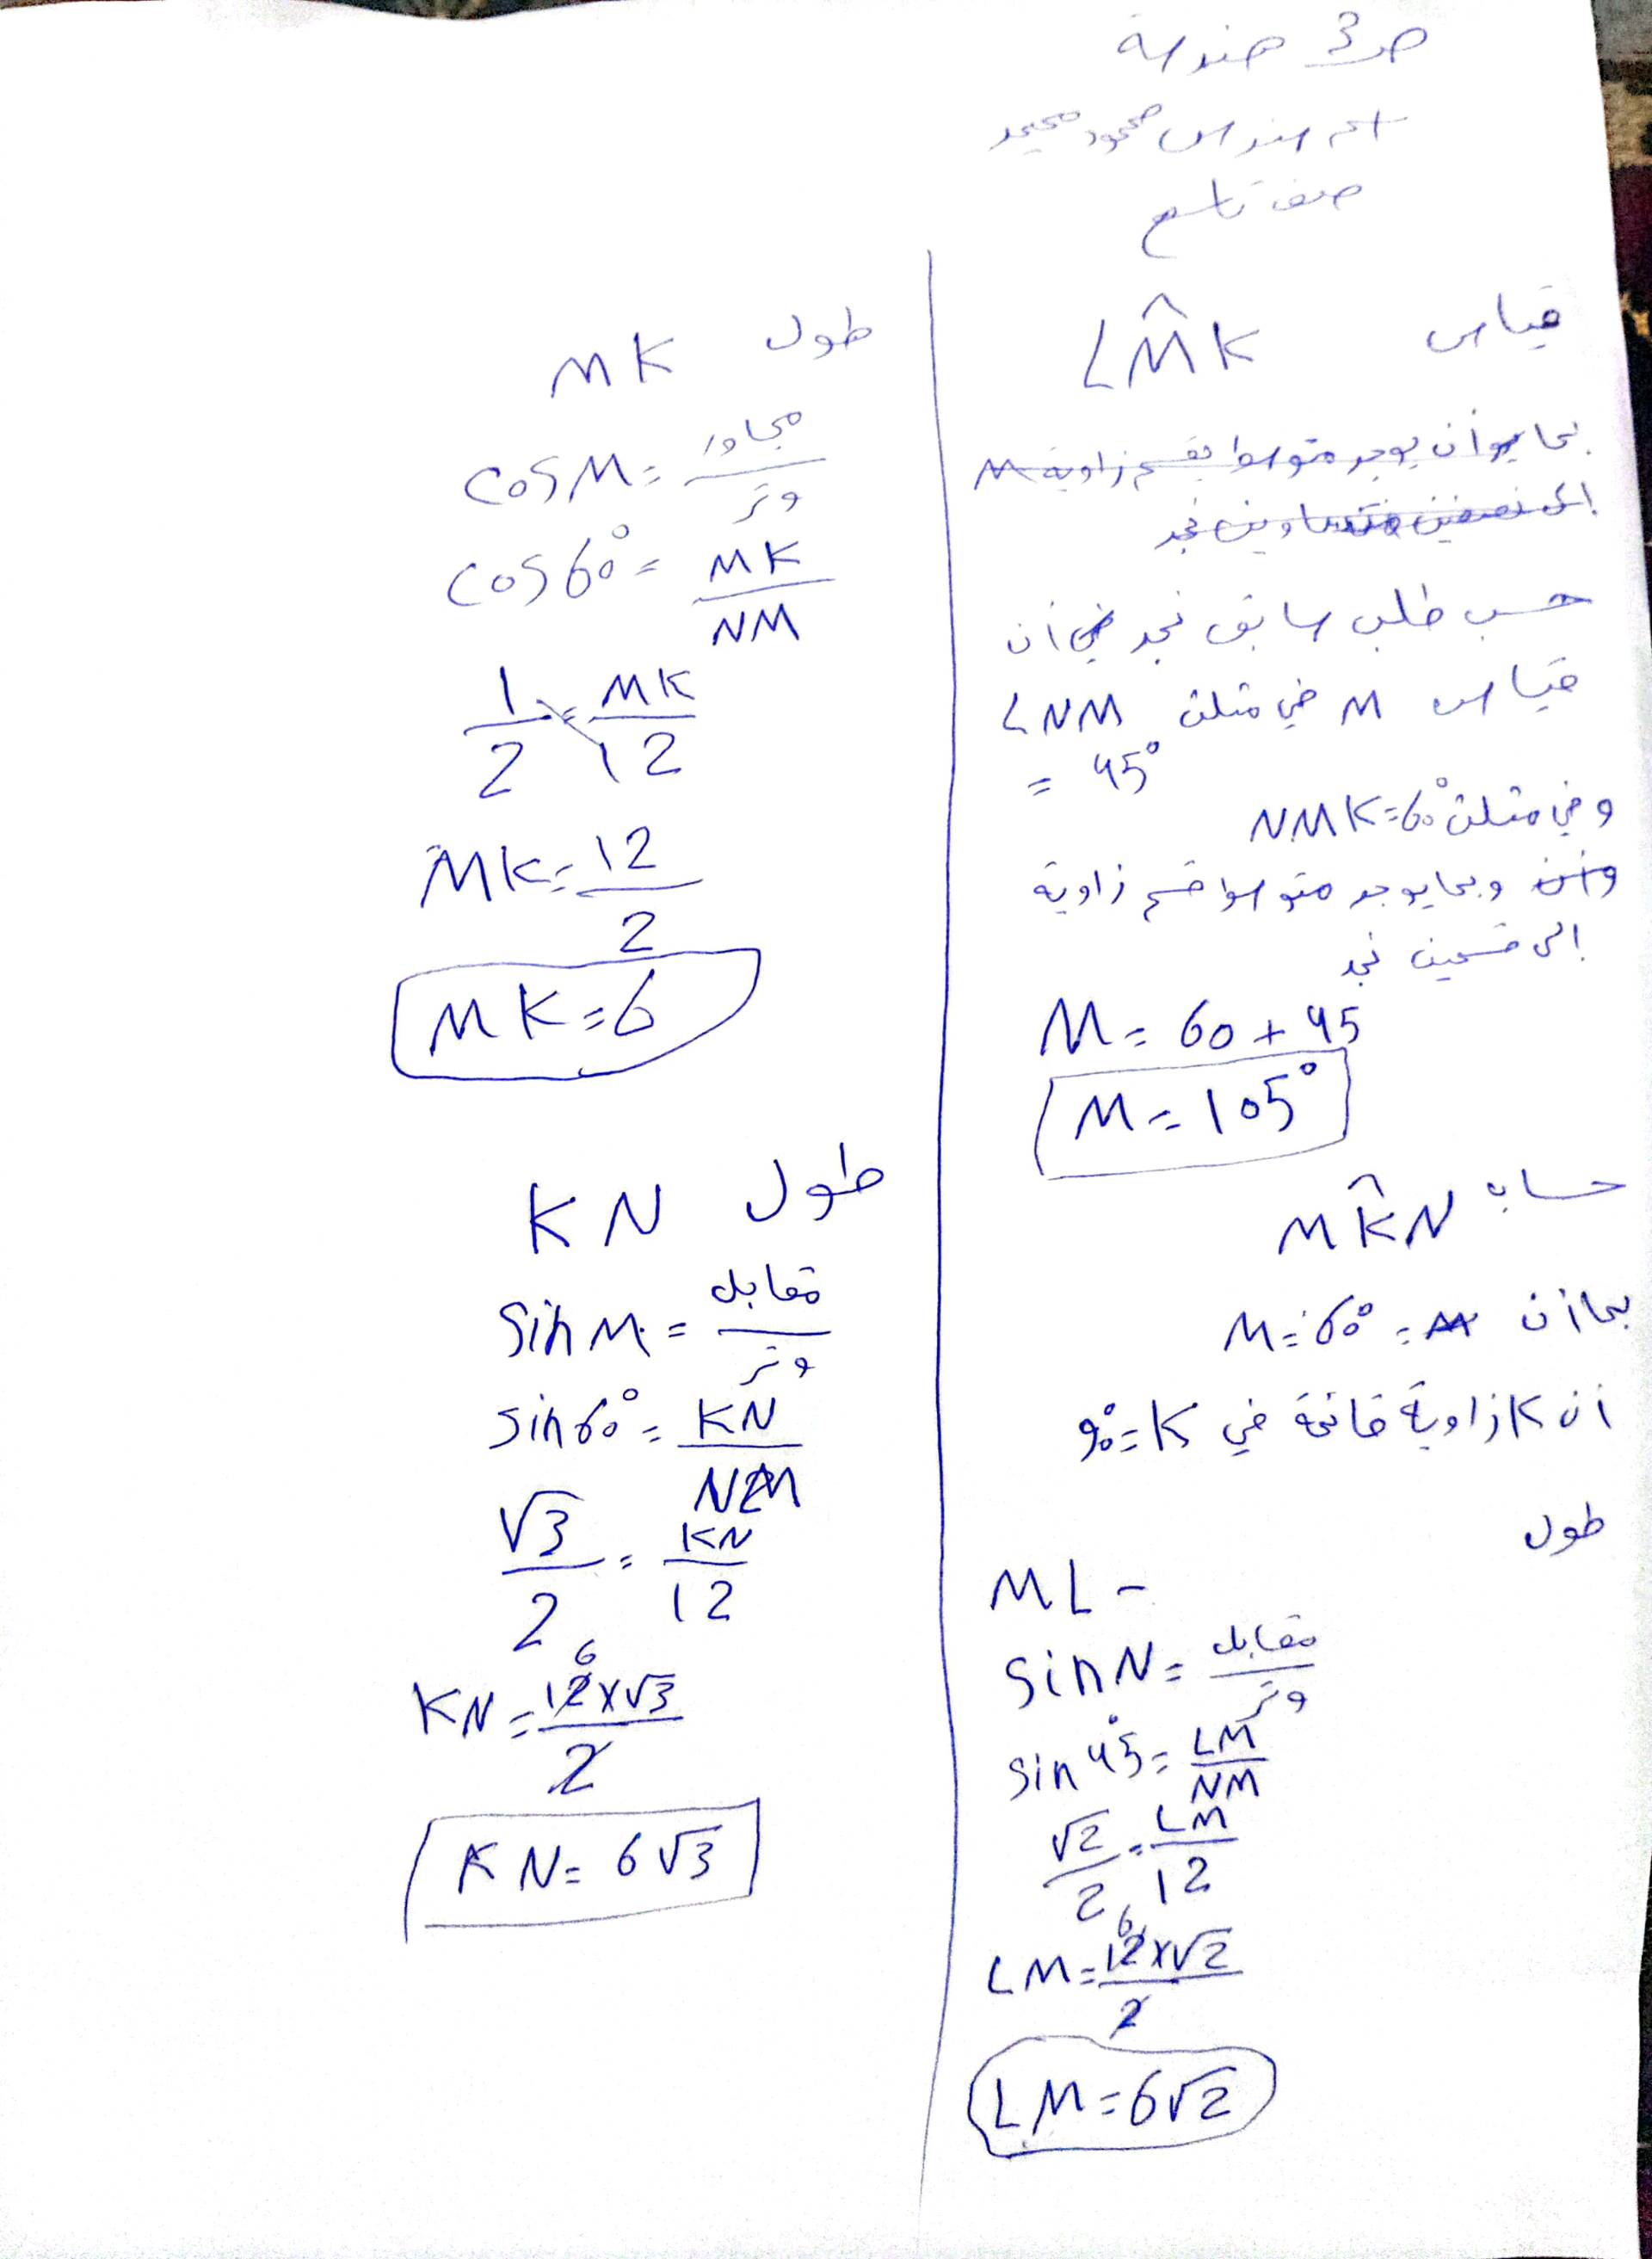 ص3 هندسة
صف تاسع
قياس LM̂K
بما أن يوجد متوسط يقسم زاوية M
إلى نصفين متساوين نجد
حسب طلب سابق نجد في أن
قياس M في مثلث LNM
= 45°
و في مثلث NMK=60°
وبما يوجد متوسط قسم زاوية
إلى قسمين نجد
M = 60 + 45
M = 105°
حساب MK̂N
بما أن M = 60°
أن K زاوية قائمة في K = 90°
طول
ML -
sin N = مقابل / وتر
sin 45° = LM / NM
√2 / 2 = LM / 12
LM = 12×√2 / 2
6
LM = 6√2
طول MK
cos M = مجاور / وتر
cos 60° = MK / NM
1 / 2 = MK / 12
MK = 12 / 2
MK = 6
طول KN
sin M = مقابل / وتر
sin 60° = KN / NM
√3 / 2 = KN / 12
KN = 12×√3 / 2
6
KN = 6√3